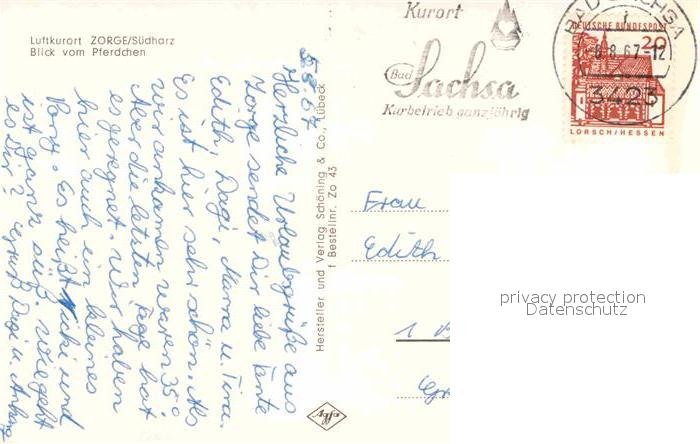 Luftkurort ZORGE/Südharz
Blick vom Pferdchen
5.8.67
Herzliche Urlaubsgrüße aus
Zorge sendet Dir liebe Tante
Edith, Dagi, Mama u. Tina.
Es ist hier sehr schön. Als
wir ankamen waren 35°.
Aber die letzten Tage hat
es geregnet. Wir haben
hier auch ein kleines
Pony. Es heißt Nicki und
ist ganz süß. Wie geht
es Dir? Gruß Dagi u. Anhang
Hersteller und Verlag Schöning & Co., Lübeck
Bestellnr. Zo 43
Agfa
Kurort
Bad Sachsa
Kurbetrieb ganzjährig
BAD SACHSA
8.67-12
3423
DEUTSCHE BUNDESPOST
20
LORSCH/HESSEN
Frau
Edith
1 B
privacy protection
Datenschutz